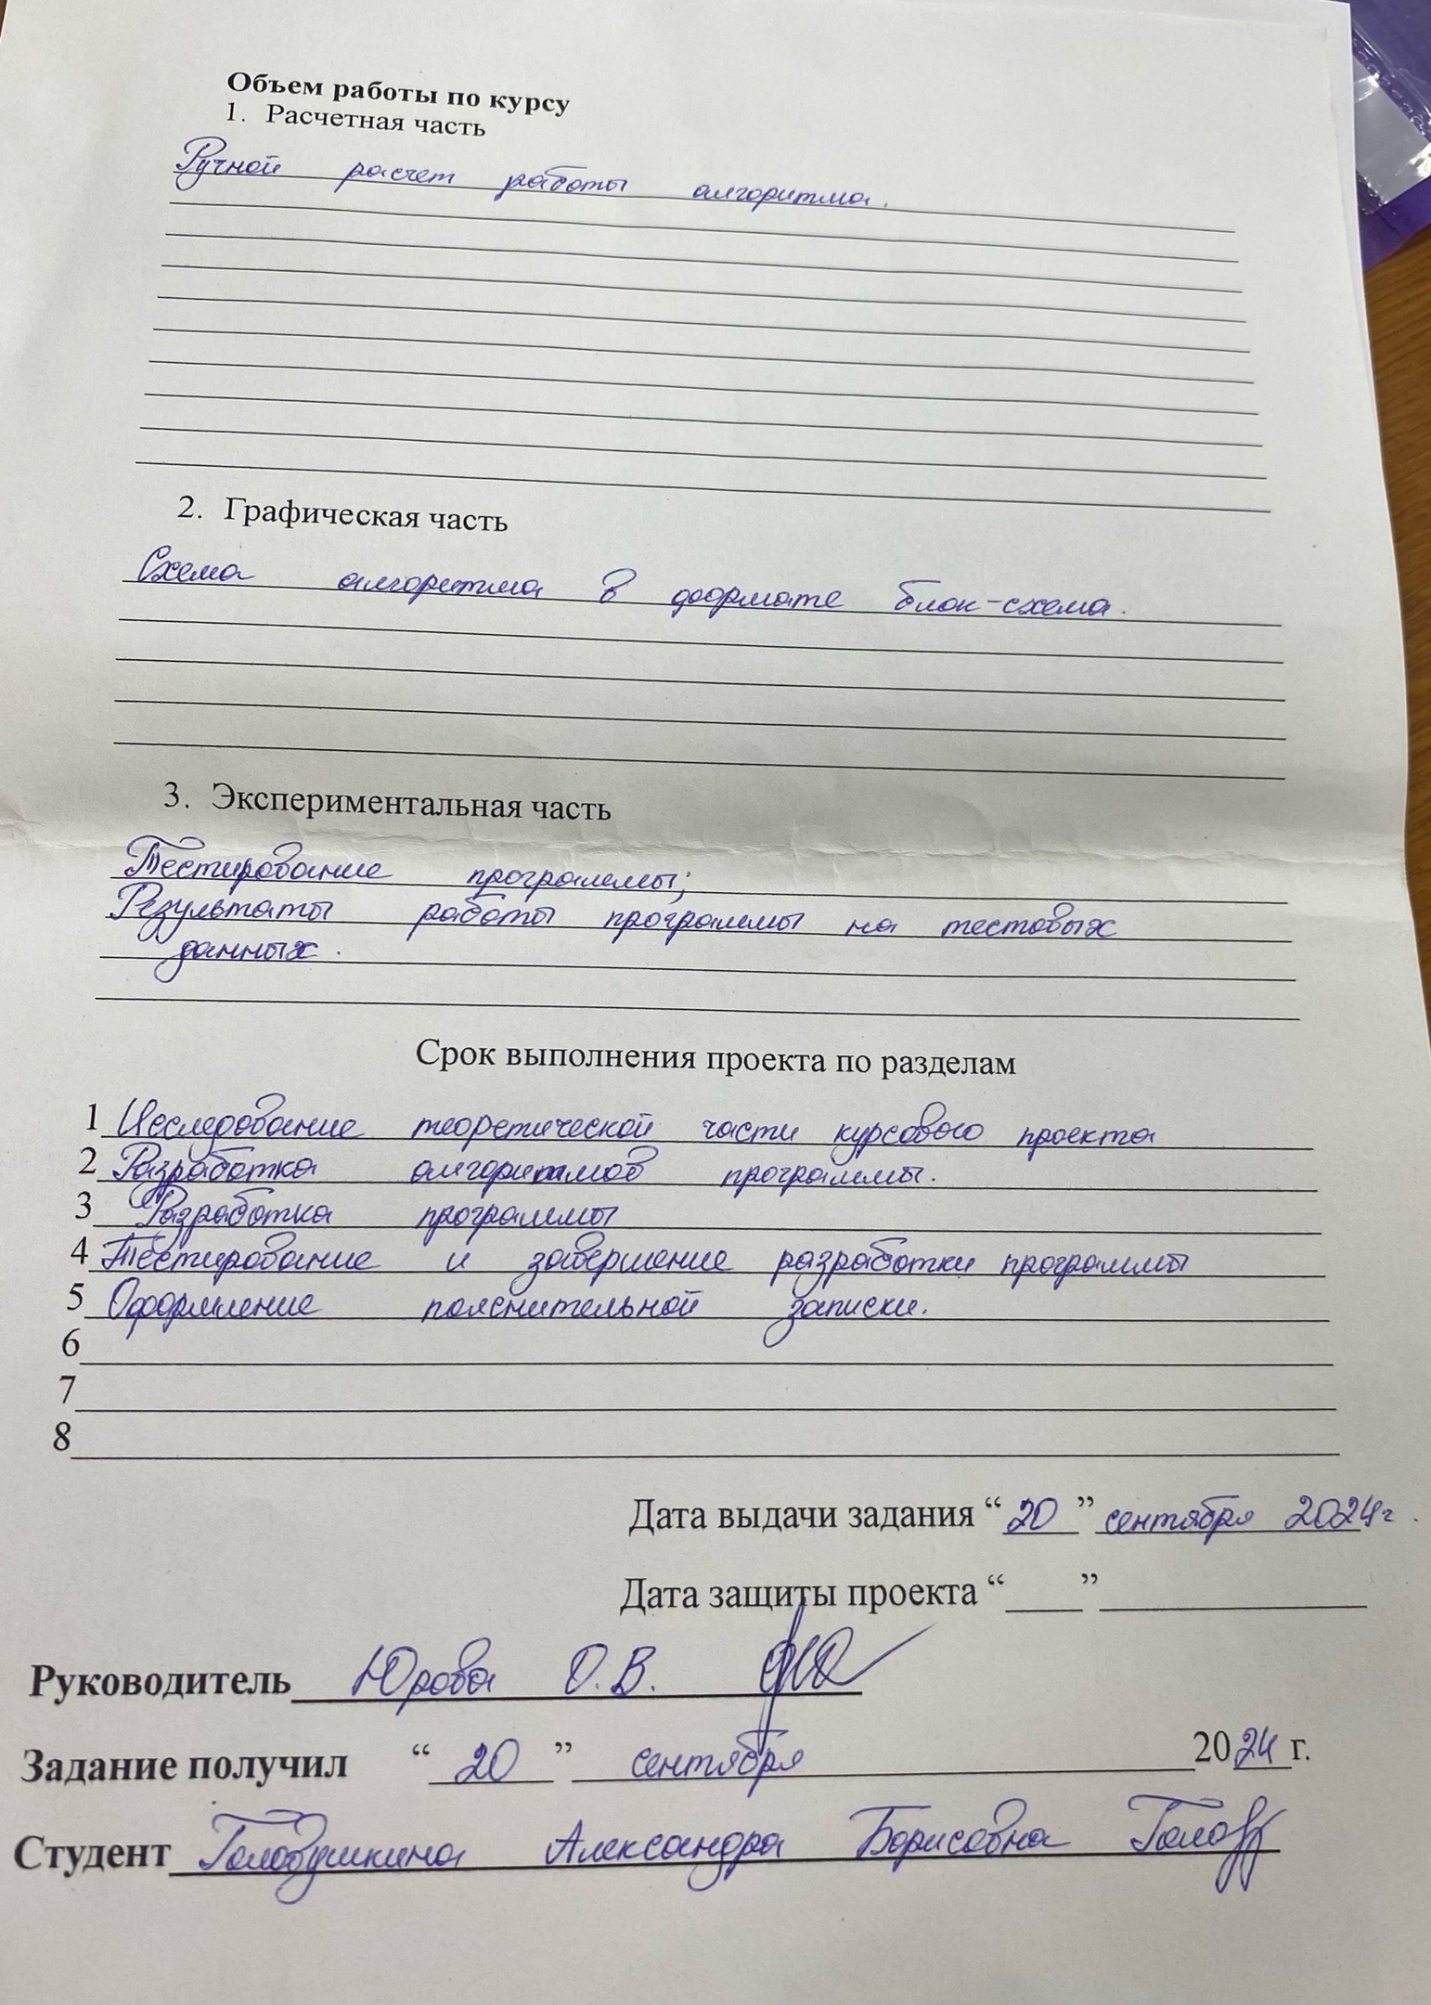 Объем работы по курсу
1. Расчетная часть
Ручной расчет работы алгоритма.
2. Графическая часть
Схема алгоритма в формате блок-схема.
3. Экспериментальная часть
Тестирование программы;
Результаты работы программы на тестовых
данных.
Срок выполнения проекта по разделам
1 Исследование теоретической части курсового проекта
2 Разработка алгоритмов программы.
3 Разработка программы
4 Тестирование и завершение разработки программы
5 Оформление пояснительной записки.
6
7
8
Дата выдачи задания “20” сентября 2024г.
Дата защиты проекта “____”
Руководитель Юрова О.В.
Задание получил “20” сентября 2024 г.
Студент Голобушкина Александра Борисовна